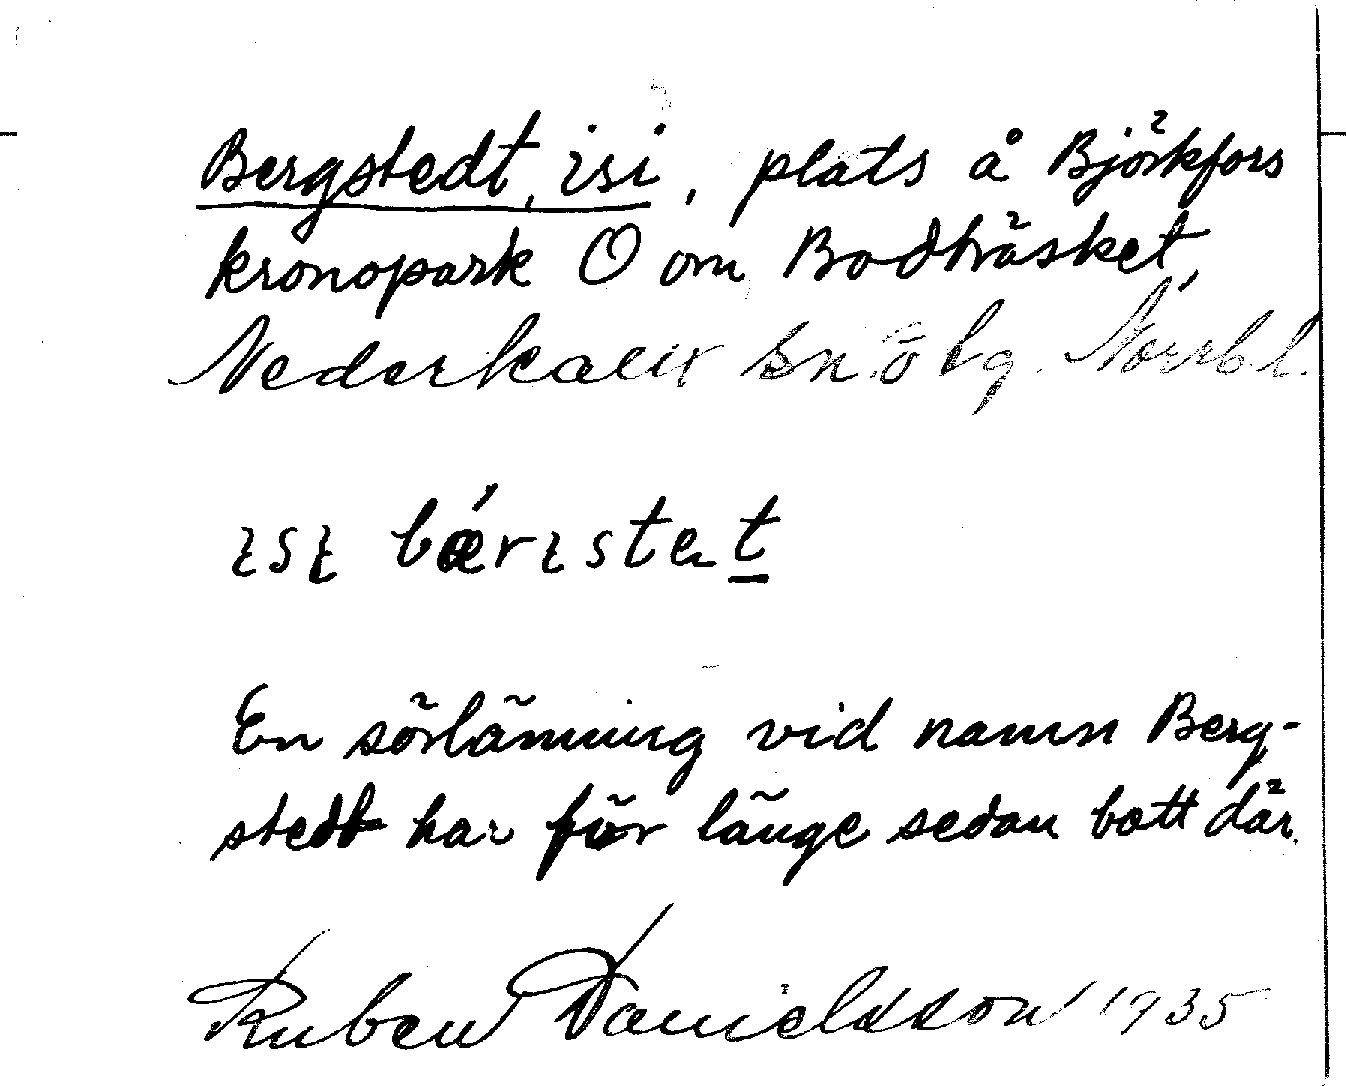 Bergstedt, isi, plats å Björkfors
kronopark O om Bodträsket,
Nederkalix sn o lg. Norrb. l.
ɩsɩ bǽrɩstet
En sörlänning vid namn Berg-
stedt har för länge sedan bott där.
Ruben Danielsson 1935